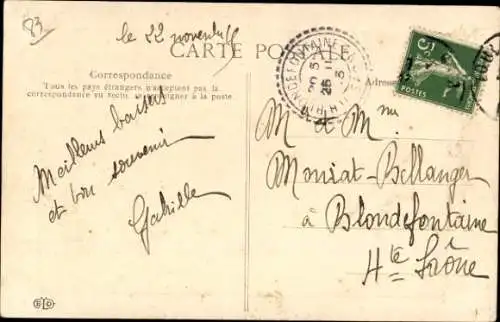 83
le 22 novembre
CARTE POSTALE
Correspondance
Tous les pays étrangers n'acceptent pas la
correspondance au recto, se renseigner à la poste
Meilleurs baisers
et bon souvenir
Gabrielle
BLONDEFONTAINE
25
5c
POSTES
M & Mme
Moniat-Bellanger
à Blondefontaine
Hte Saône
ELD